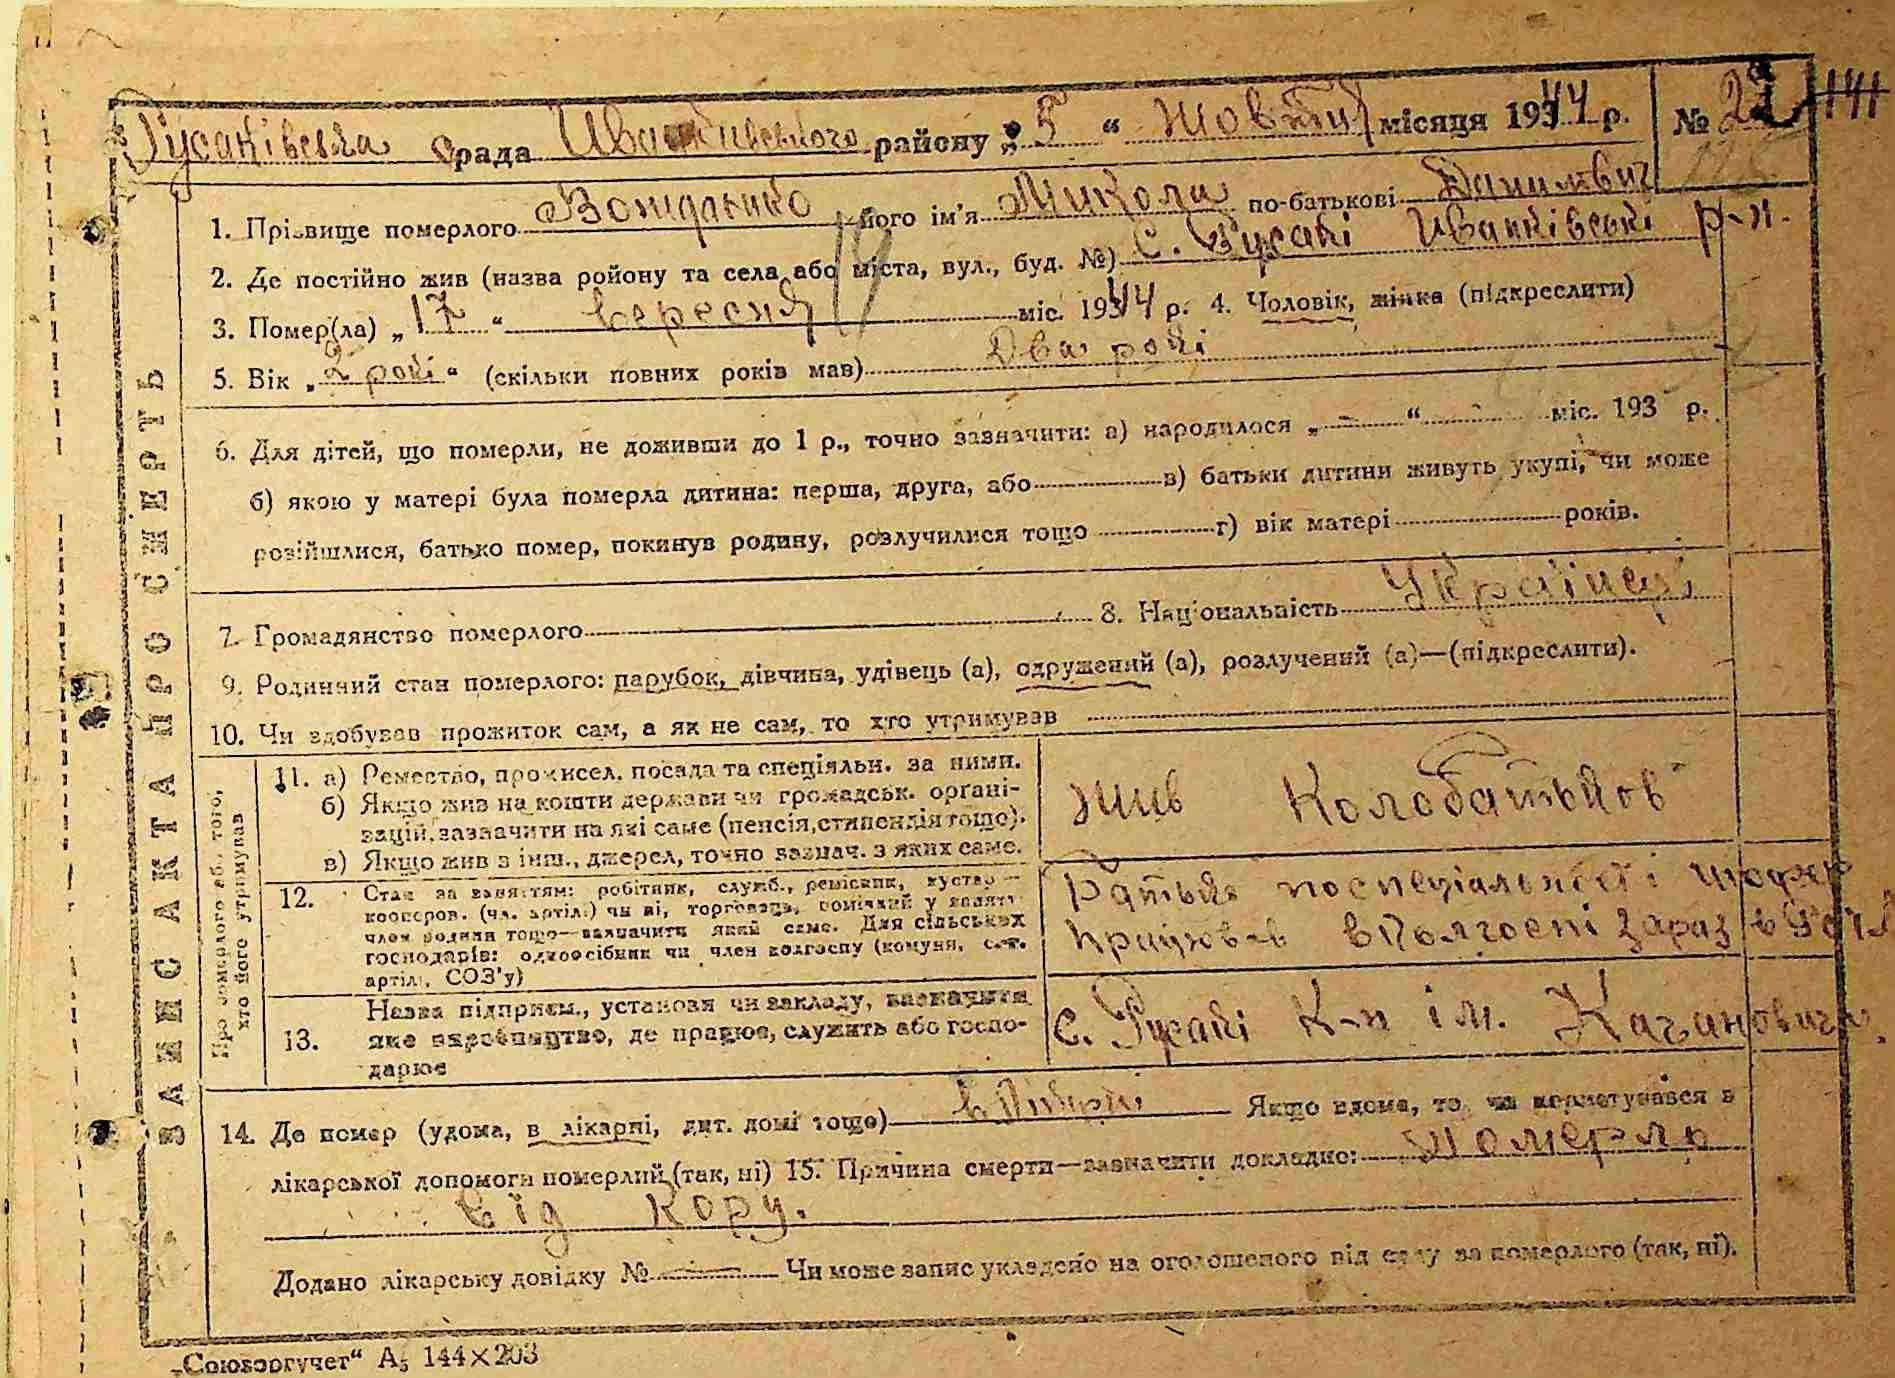 Русаківська рада Иванківського району „5“ Жовтня місяця 1944 р. №
1. Прізвище померлого його ім'я Микола по-батькові Данилович
2. Де постійно жив (назва ройону та села або міста, вул., буд. №) с. Русакі Иванківські р-н.
3. Помер(ла) „17“ вересня 19 міс. 1944 р. 4. Чоловік, жінка (підкреслити)
5. Вік „2 рокі“ (скільки повних років мав) Два рокі
6. Для дітей, що померли, не доживши до 1 р., точно зазначити: а) народилося „—“ міс. 193 р.
б) якою у матері була померла дитина: перша, друга, або в) батьки дитини живуть укупі, чи може
розійшлися, батько помер, покинув родину, розлучилися тощо г) вік матері років.
7. Громадянство померлого 8. Національність
9. Родинний стан померлого: парубок, дівчина, удівець (а), одружений (а), розлучений (а)—(підкреслити).
10. Чи здобував прожиток сам, а як не сам, то хто утримував
ЗАПИС АКТА ПРО СМЕРТЬ
Про померлого або того, хто його утримував
11. а) Ремество, промисел, посада та спеціяльн. за ними.
б) Якщо жив на кошти держави чи громадськ. органі-
зацій, зазначити на які саме (пенсія, стипендія тощо).
в) Якщо жив з інш., джерел, точно зазнач. з яких саме.
жив Колобатьков
12. Стан за заняттям: робітник, служб., ремісник, кустар—
кооперов. (чл. артілі) чи ні, торговець,
член родини тощо—зазначити який саме. Для сільських
господарів: одноосібник чи член колгоспу (комуни, с.-г.
артілі, СОЗ'у)
Батько поспеціальності шофер
Працював вКолгоспі зараз в
13. Назва підприєм., установи чи закладу, зазначити
яке виробництво, де працює, служить або госпо-
дарює
с. Русакі К-п ім. Кагановича.
14. Де помер (удома, в лікарні, дит. домі тощо) Якщо вдома, то чи користувався з
лікарської допомоги померлий (так, ні) 15. Причина смерти—зазначити докладно: Померло
Від Кору.
Додано лікарську довідку № — Чи може запис укладено на оголошеного від суду за померлого (так, ні).
„Союзоргучет“ А5 144×203